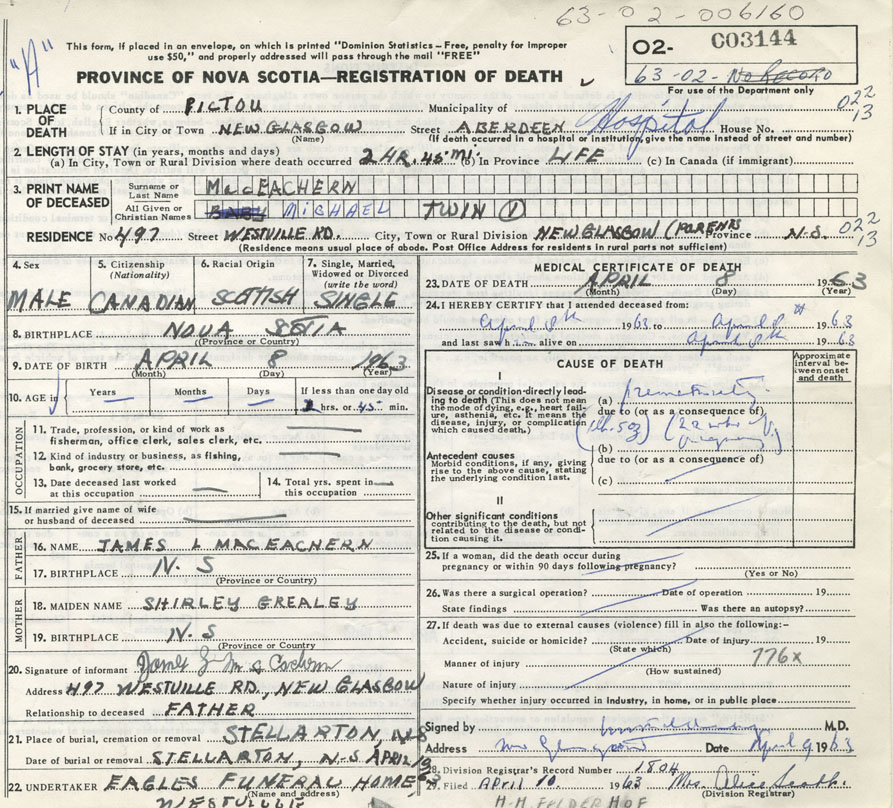 63-02-006160
"A"
This form, if placed in an envelope, on which is printed "Dominion Statistics - Free, penalty for improper
use $50," and properly addressed will pass through the mail "FREE"
02- C03144
63-02- No RECORD
PROVINCE OF NOVA SCOTIA—REGISTRATION OF DEATH
For use of the Department only
1. PLACE OF DEATH
County of PICTOU Municipality of 022
If in City or Town NEW GLASGOW Street ABERDEEN Hospital House No. 13
(Name) (If death occurred in a hospital or institution, give the name instead of street and number)
2. LENGTH OF STAY (in years, months and days)
(a) In City, Town or Rural Division where death occurred 2 HR. 45 MI. (b) In Province LIFE (c) In Canada (if immigrant)
3. PRINT NAME OF DECEASED
Surname or Last Name MacEACHERN
All Given or Christian Names BABY MICHAEL TWIN (1)
RESIDENCE No 497 Street WESTVILLE RD. City, Town or Rural Division NEW GLASGOW (PARENTS Province N.S. 022
13
(Residence means usual place of abode. Post Office Address for residents in rural parts not sufficient)
4. Sex
MALE
5. Citizenship
(Nationality)
CANADIAN
6. Racial Origin
SCOTTISH
7. Single, Married,
Widowed or Divorced
(write the word)
SINGLE
8. BIRTHPLACE NOVA SCOTIA
(Province or Country)
9. DATE OF BIRTH APRIL 8 1963
(Month) (Day) (Year)
10. AGE in Years Months Days If less than one day old
2 hrs. or 45 min.
OCCUPATION
11. Trade, profession, or kind of work as
fisherman, office clerk, sales clerk, etc.
12. Kind of industry or business, as fishing,
bank, grocery store, etc.
13. Date deceased last worked
at this occupation
14. Total yrs. spent in
this occupation
15. If married give name of wife
or husband of deceased
FATHER
16. NAME JAMES L MACEACHERN
17. BIRTHPLACE N. S
(Province or Country)
MOTHER
18. MAIDEN NAME SHIRLEY GREALEY
19. BIRTHPLACE N. S
(Province or Country)
20. Signature of informant
Address 497 WESTVILLE RD., NEW GLASGOW
Relationship to deceased FATHER
21. Place of burial, cremation or removal STELLARTON, N-S
Date of burial or removal STELLARTON, N-S APRIL 9
22. UNDERTAKER EAGLES FUNERAL HOME
(Name and address)
WESTVILLE
MEDICAL CERTIFICATE OF DEATH
23. DATE OF DEATH APRIL 8 1963
(Month) (Day) (Year)
24. I HEREBY CERTIFY that I attended deceased from:
April 8th 1963 to April 8th 1963
and last saw him alive on April 8th 1963
CAUSE OF DEATH
Approximate
interval be-
tween onset
and death
I
Disease or condition directly lead-
ing to death (This does not mean
the mode of dying, e.g., heart fail-
ure, asthenia, etc. It means the
disease, injury, or complication
which caused death.)
(a) prematurity
due to (or as a consequence of)
(1 lb. 5 oz) (22 wks of
pregnancy)
(b)
Antecedent causes
Morbid conditions, if any, giving
rise to the above cause, stating
the underlying condition last.
due to (or as a consequence of)
(c)
II
Other significant conditions
contributing to the death, but not
related to the disease or condit-
ion causing it.
25. If a woman, did the death occur during
pregnancy or within 90 days following pregnancy?
(Yes or No)
26. Was there a surgical operation? Date of operation 19
State findings Was there an autopsy?
27. If death was due to external causes (violence) fill in also the following:-
Accident, suicide or homicide? Date of injury 19
(State which)
Manner of injury 776x
(How sustained)
Nature of injury
Specify whether injury occurred in Industry, in home, or in public place
Signed by M.D.
Address New Glasgow Date April 9 1963
28. Division Registrar's Record Number 1804
29. Filed APRIL 10. 1963 Mrs. Alice Scott
(Division Registrar)
H.H. FELDERHOF